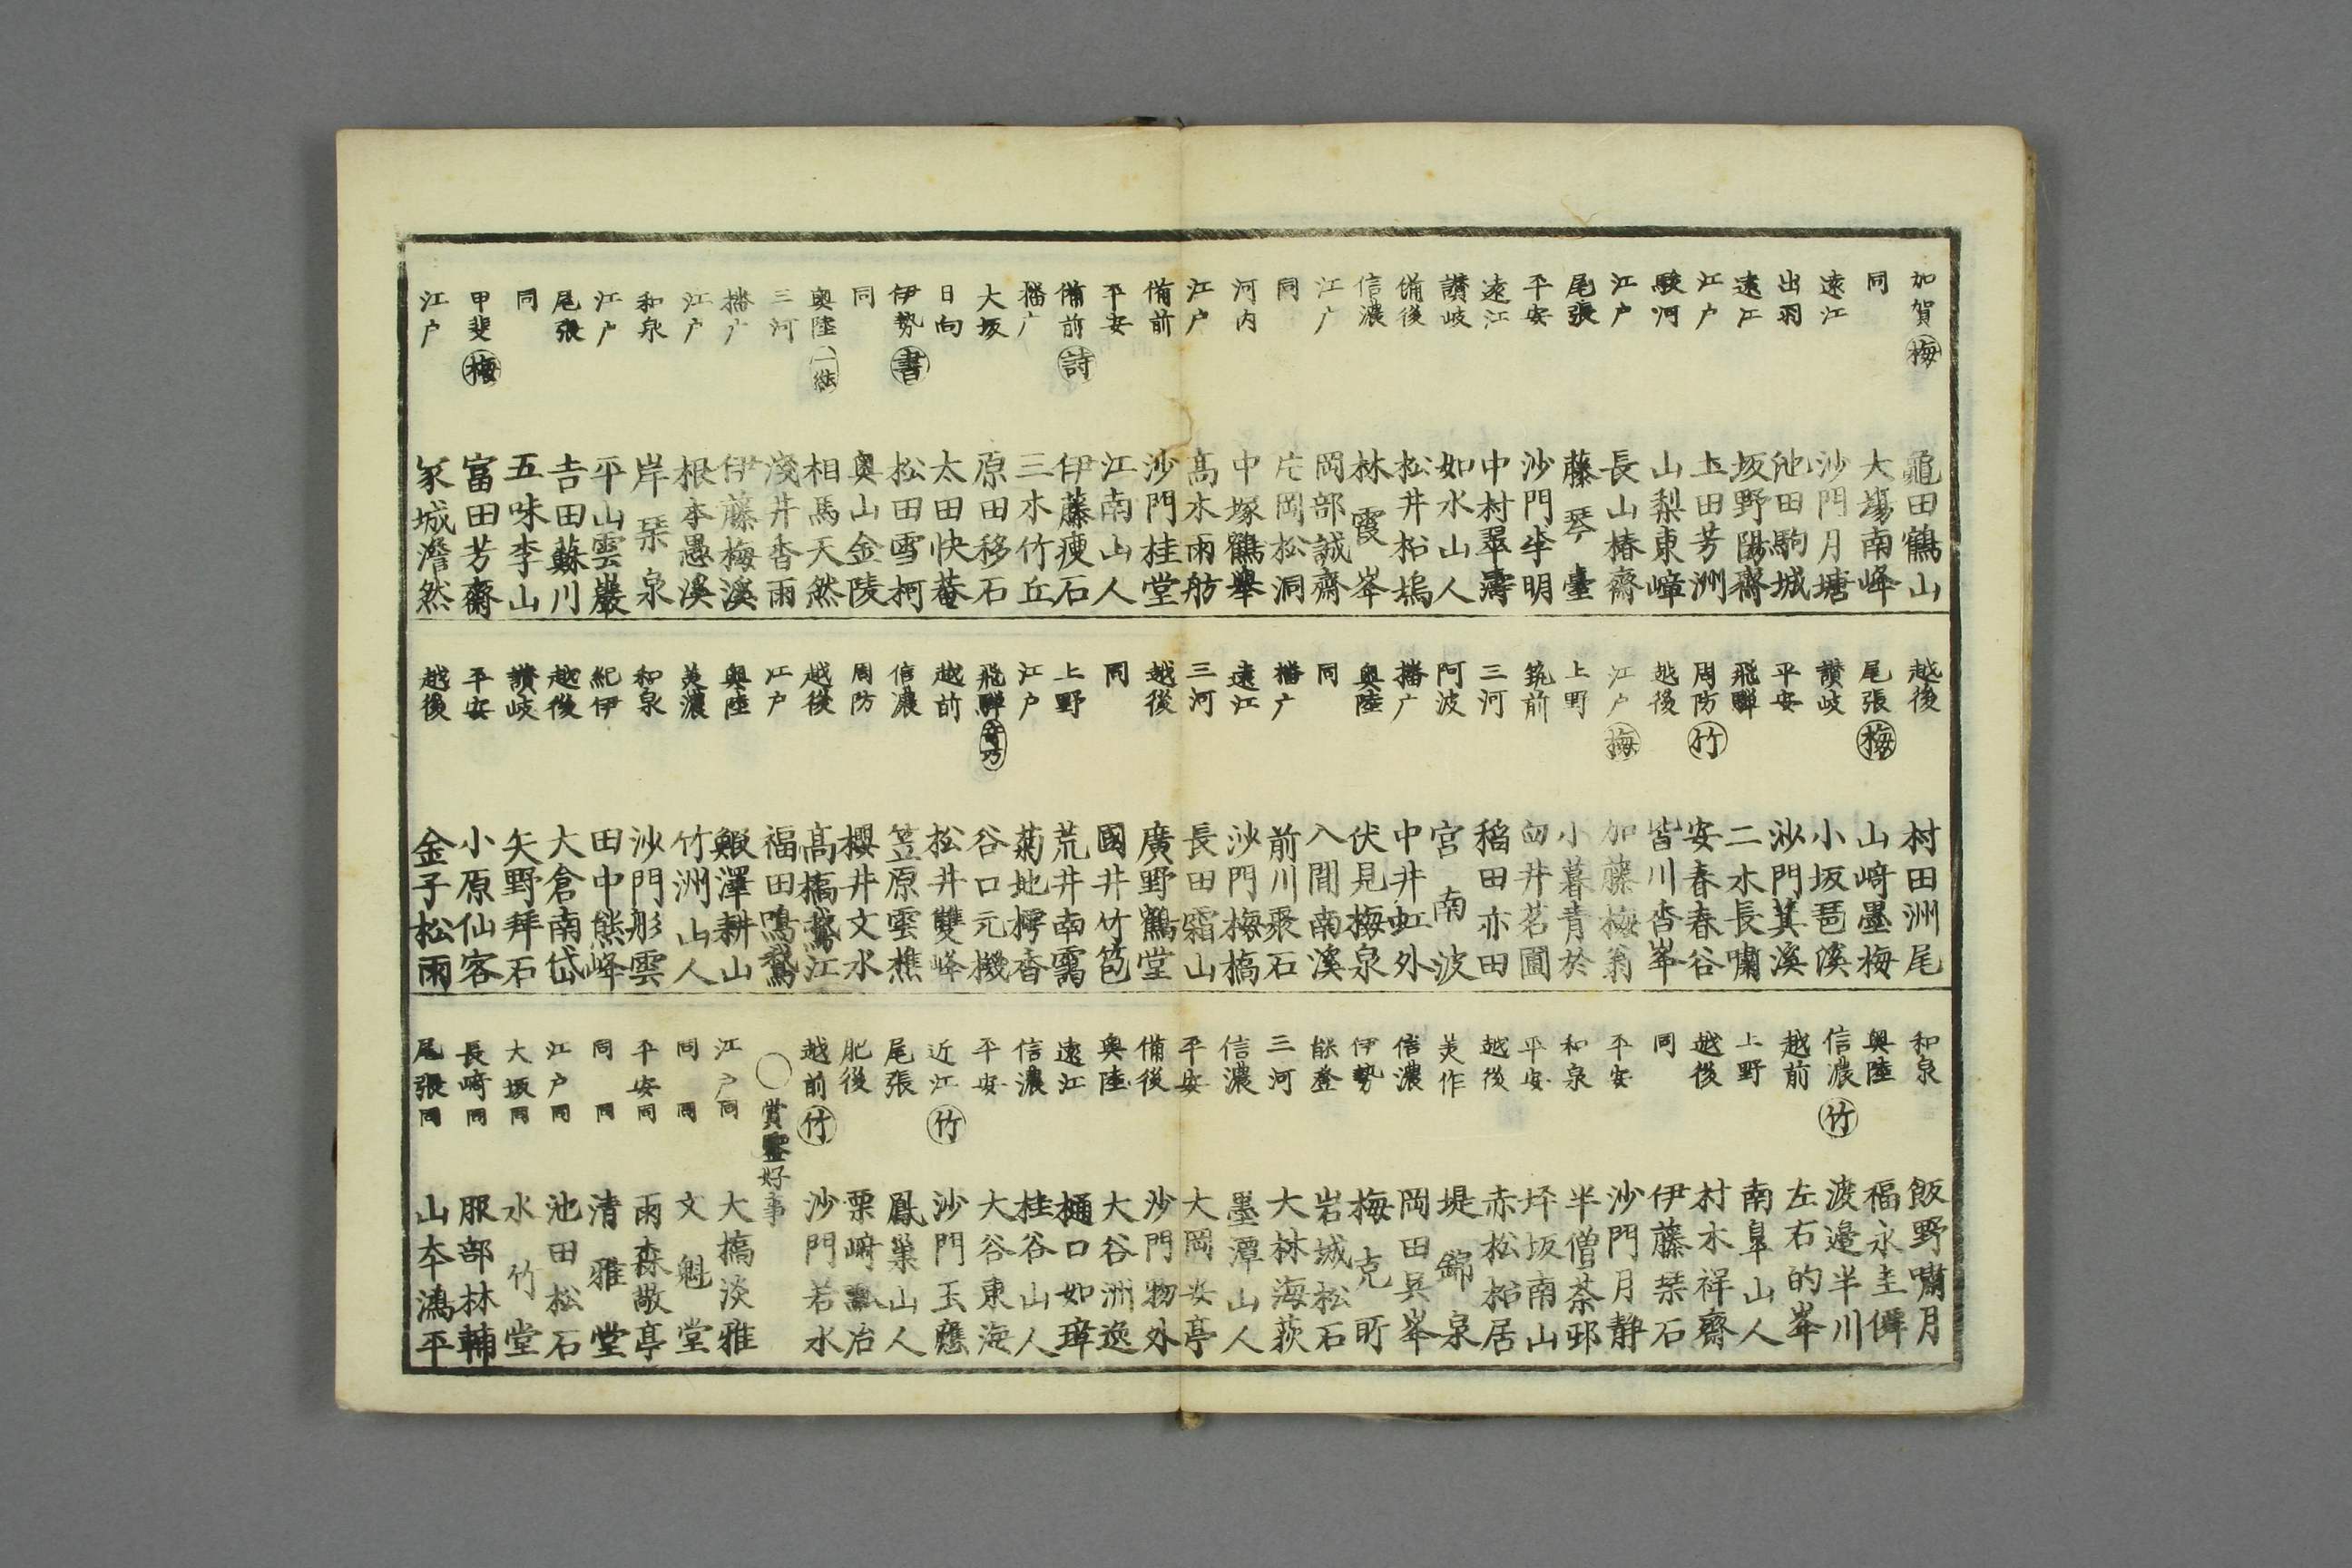 加賀 梅 龜田鶴山
同 大塲南峰
遠江 沙門月塘
出羽 池田駒城
遠江 坂野陽齋
江戸 上田芳洲
駿河 山梨東嶂
江戸 長山椿齋
尾張 藤琴臺
平安 沙門半明
遠江 中村翠濤
讃岐 如水山人
備後 松井柗塢
信濃 林霞峯
江戸 岡部誠齋
同 片岡松洞
河内 中塚鶴舉
江戸 髙木雨舫
備前 沙門桂堂
平安 江南山人
備前 詩 伊藤痩石
播广 三木竹丘
大坂 原田移石
日向 太田快菴
伊勢 書 松田雪柯
同 奥山金陵
奥陸 相馬天然
三河 淺井香雨
播广 伊藤梅溪
江戸 根本愚溪
和泉 岸琹泉
江戸 平山雲巖
尾張 吉田蘇川
同 五味李山
甲斐 梅 富田芳齋
江戸 冢城澹然
越後 村田洲尾
尾張 梅 山﨑墨梅
讃岐 小坂琶溪
平安 沙門箕溪
飛騨 二水長嘯
周防 竹 安春春谷
越後 皆川杏峯
江戸 梅 加藤梅翁
上野 小暮青於
筑前 匂井茗圃
三河 稻田亦田
阿波 宮南波
播广 中井虹外
奥陸 伏見梅泉
同 入間南溪
播广 前川聚石
遠江 沙門梅橋
三河 長田霜山
越後 廣野鶴堂
同 國井竹笆
上野 荒井南靄
江戸 菊地樗香
飛騨 奇巧 谷口元機
越前 松井雙峰
信濃 笠原雲樵
周防 櫻井文水
越後 髙橋鵞江
江戸 福田鳴鵞
奥陸 鰕澤耕山
美濃 竹洲山人
和泉 沙門彤雲
紀伊 田中熊峰
越後 大倉南岱
讃岐 矢野拜石
平安 小原仙客
越後 金子松雨
和泉 飯野嘯月
奥陸 福永圭僊
信濃 竹 渡邉半川
越前 左右的峯
上野 南皐山人
越後 村木祥齋
同 伊藤琹石
平安 沙門月静
和泉 半僧茶邨
平安 坪坂南山
越後 赤松柗居
美作 堤錦泉
信濃 岡田呉峯
伊勢 梅克町
能登 岩城松石
三河 大林海荻
信濃 墨潭山人
平安 大岡安亭
備後 沙門物外
奥陸 大谷洲逸
遠江 樋口如璋
信濃 桂谷山人
平安 大谷東海
近江 竹 沙門玉應
尾張 鳳巢山人
肥後 栗﨑瓢冶
越前 竹 沙門若水
○賞鑒好事
江戸 同 大橋淡雅
同 同 文魁堂
平安 同 雨森敬亭
同 同 清雅堂
江戸 同 池田松石
大坂 同 水竹堂
長﨑 同 服部林輔
尾張 同 山本鴻平